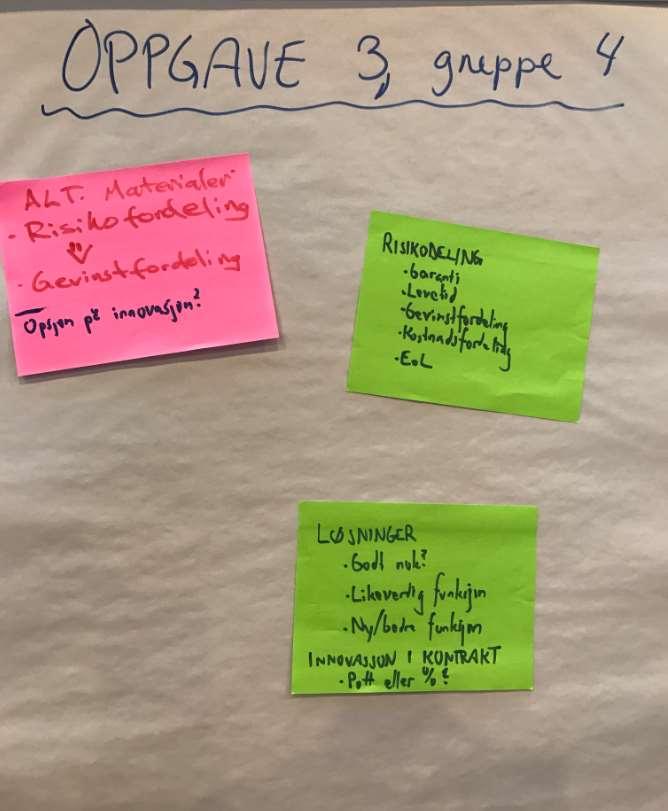 OPPGAVE 3, gruppe 4
ALT. Materialer
· Risikofordeling
· Gevinstfordeling
Opsjon på innovasjon?
RISIKODELING
· Garanti
· Levetid
· Gevinstfordeling
· Kostnadsfordeling
· EoL
LØSNINGER
· Godt nok?
· Likeverdig funksjon
· Ny/bedre funksjon
INNOVASJON I KONTRAKT
· Pott eller %?